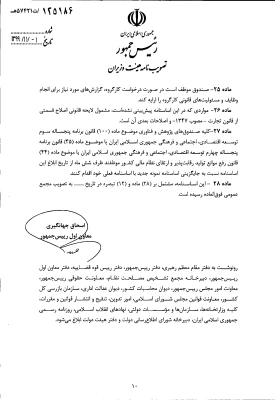 ۱۲۵۱۸۶/ت۵۷۴۳۱هـ
۱۳۹۹/۱۱/۰۱
جمهوری اسلامی ایران
رئیس جمهور
تصویب نامه هیئت وزیران
شماره
تاریخ
ماده ۲۵- صندوق موظف است در صورت درخواست کارگروه، گزارش‌های مورد نیاز برای انجام
وظایف و مسئولیت‌های قانونی کارگروه را ارایه کند.
ماده ۲۶- مواردی که در این اساسنامه پیش‌بینی نشده‌است، مشمول لایحه قانونی اصلاح قسمتی
از قانون تجارت - مصوب ۱۳۴۷- و اصلاحات بعدی آن است.
ماده ۲۷- کلیه صندوق‌های پژوهش و فناوری موضوع ماده (۱۰۰) قانون برنامه پنجساله سوم
توسعه اقتصادی، اجتماعی و فرهنگی جمهوری اسلامی ایران یا موضوع ماده (۴۵) قانون برنامه
پنجساله چهارم توسعه اقتصادی، اجتماعی و فرهنگی جمهوری اسلامی ایران یا موضوع ماده (۴۴)
قانون رفع موانع تولید رقابت‌پذیر و ارتقای نظام مالی کشور موظفند ظرف شش ماه از تاریخ ابلاغ این
اساسنامه نسبت به جایگزینی اساسنامه نمونه جدید با اساسنامه فعلی خود اقدام کنند.
ماده ۲۸- این اساسنامه، مشتمل بر (۲۸) ماده و (۱۲) تبصره در تاریخ ..... به تصویب مجمع
عمومی فوق‌العاده رسیده است.
اسحاق جهانگیری
معاون اول رییس‌جمهور
رونوشت به دفتر مقام معظم رهبری، دفتر رییس‌جمهور، دفتر رییس قوه قضاییه، دفتر معاون اول
رییس‌جمهور، دبیرخانه مجمع تشخیص مصلحت نظام، معاونت حقوقی رییس‌جمهور،
معاونت امور مجلس رییس‌جمهور، دیوان محاسبات کشور، دیوان عدالت اداری، سازمان بازرسی کل
کشور، معاونت قوانین مجلس شورای اسلامی، امور تدوین، تنقیح و انتشار قوانین و مقررات،
کلیه وزارتخانه‌ها، سازمان‌ها و مؤسسات دولتی، نهادهای انقلاب اسلامی، روزنامه رسمی
جمهوری اسلامی ایران، دبیرخانه شورای اطلاع‌رسانی دولت و دفتر هیئت دولت ابلاغ می‌شود.
۱۰